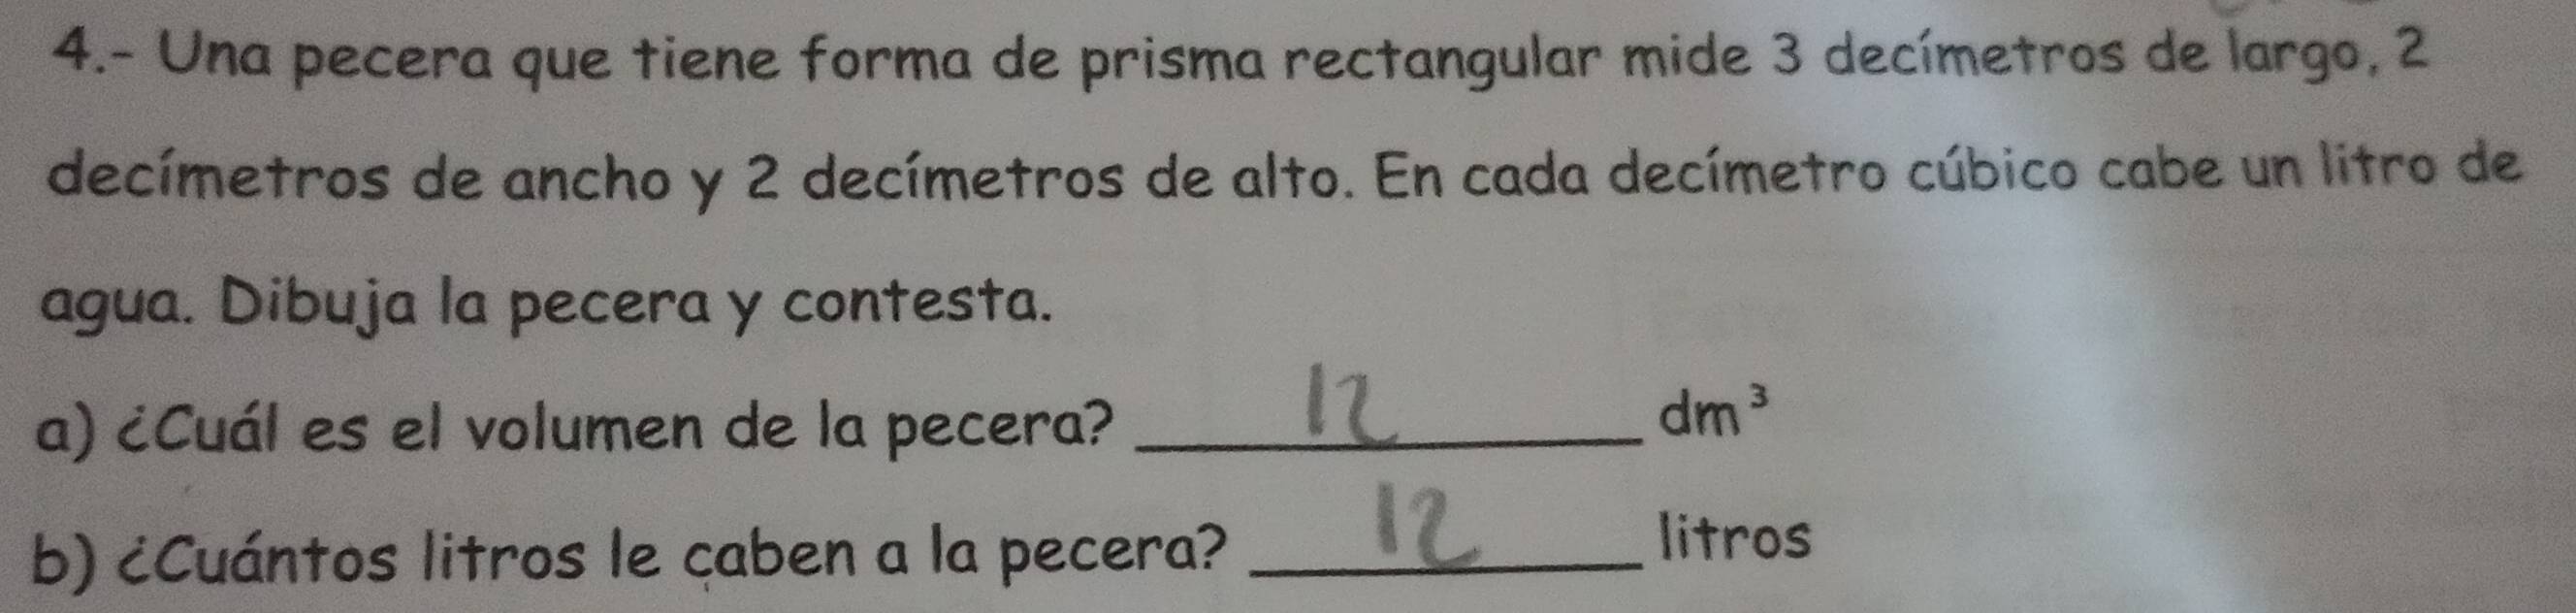 4.- Una pecera que tiene forma de prisma rectangular mide 3 decímetros de largo, 2
decímetros de ancho y 2 decímetros de alto. En cada decímetro cúbico cabe un litro de
agua. Dibuja la pecera y contesta.
a) ¿Cuál es el volumen de la pecera? 12 dm³
b) ¿Cuántos litros le caben a la pecera? 12 litros